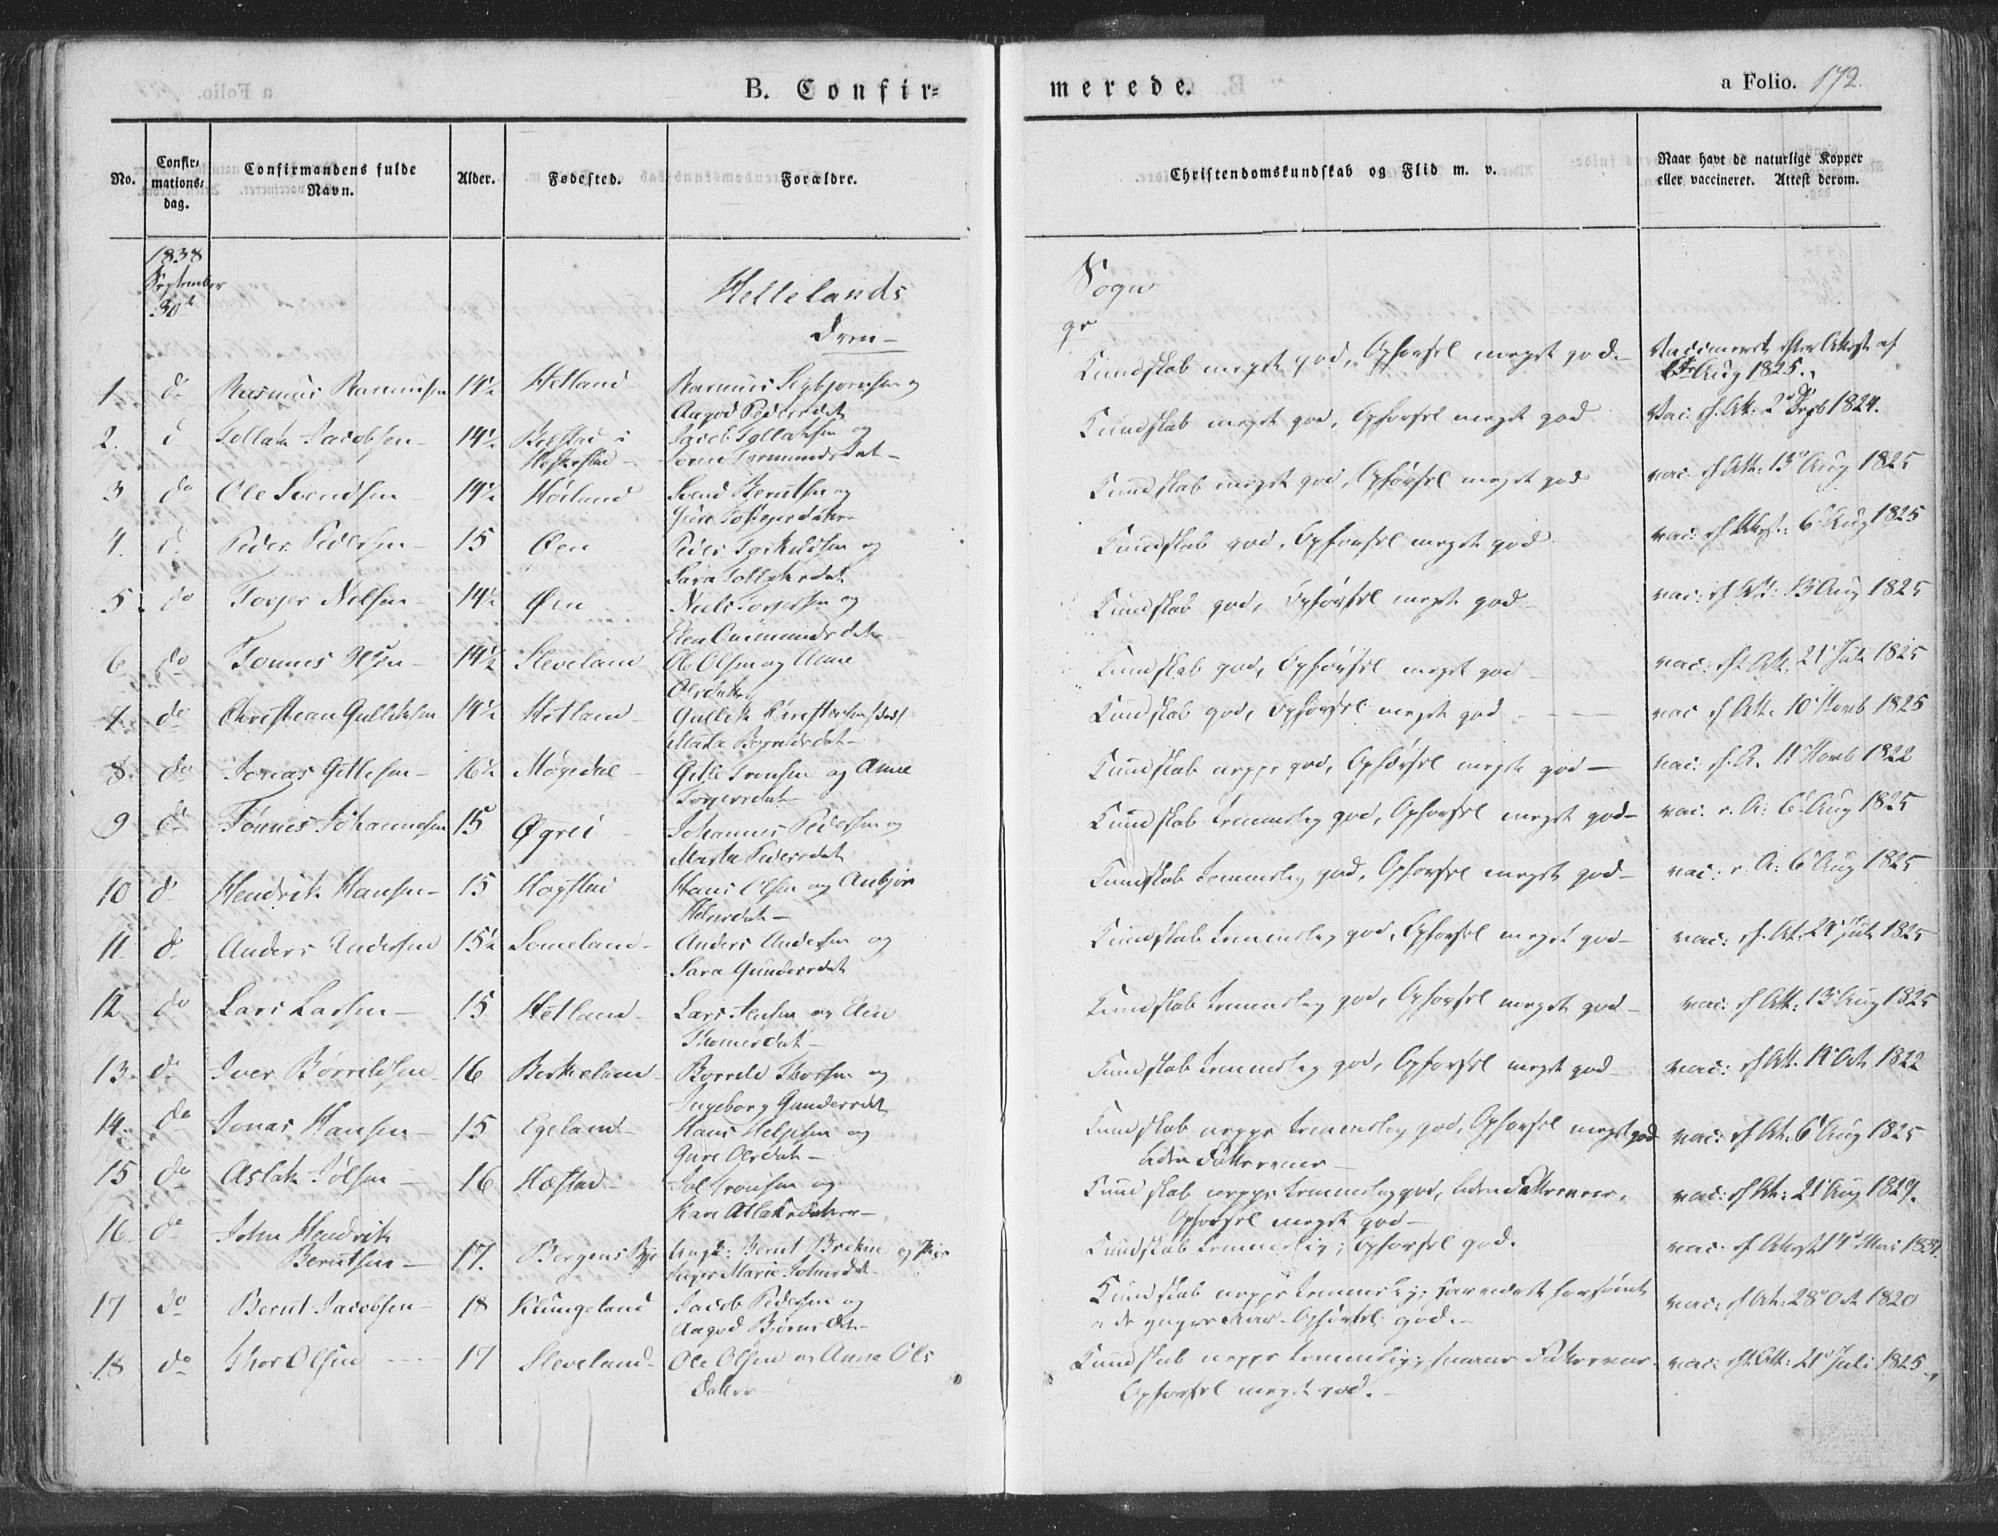 B. Confir=
merede.
a Folio. 172.
No.
Confir-
mations-
dag.
Confirmandens fulde
Navn.
Alder.
Fødested.
Forældre.
Christendomskundskab og Flid m. v.
Naar havt de naturlige Kopper
eller vaccineret. Attest derom.
1838
September
30te
Hellelands
Sogn
Dren-
ge
1. do Rasmus Rasmusen 14½ Hetland Rasmus Sigbjørnsen og
Aagod Pedersdat
Kundskab meget god, Opførsel meget god Vaccineret efter Attest af
Aug 1825.
2. d Tollak Jacobsen 14½ i Jacob Tollaksen og
Heskestad Gormundsdat
Kundskab meget god, Opførsel meget god Vac. ef. Att. 2 1824.
3 do Ole Svendsen 14½ Hørland Svend Berntsen og
Kundskab meget god, Opførsel meget god vac. ef Att: 13 Aug 1825
4. d. Peder Pedersen 15 Øen Peder Torkildsen og
Sara Tollaksdat
Kundskab god, Opførsel meget god vac. ef Attest: 6 Aug 1825
5. do Torger Nilsen 14½ Øen Niels Torgersen og
Elen
Kundskab god, Opførsel meget god vac: ef Att: 13 Aug 1825
6 do Tønnes Olsen 14½ Sleveland Ole Olsen og Anne
Olsdatter
Kundskab god, Opførsel meget god vac: ef. Att. 21 Juli 1825
7 do Christian Gulliksen 14½ Hetland Gullik Christensen
Marta
Kundskab god, Opførsel meget god vac ef Att. 10 Novb 1825
8. do Jonas Gitlesen 16½ Møgedal Gitle Svensen og Anne
Torgersdat
Kundskab neppe god, Opførsel meget god vac: ef. A. 11 Novb 1822
9 do Tønnes Johannesen 15 Øgrei Johannes Pedersen og
Marta Pedersdat
Kundskab temmelig god, Opførsel meget god vac. e. A: 6 Aug 1825
10 d Hendrik Hansen 15 Hogstad Hans Olsen og Anbjør
Kundskab temmelig god, Opførsel meget god vac: e. A: 6 Aug 1825
11. do Anders Andersen 15½ Someland Anders Andersen og
Sara Gundersdat
Kundskab temmelig god, Opførsel meget god vac: ef. At. 21 Juli 1825
12 do Lars Larsen 15 Hetland Lars Jensen og Elen
Thomasdat
Kundskab temmelig god, Opførsel meget god vac: ef Att: 13 Aug 1825
13. do Iver Børrildsen 16 Birkeland Børrild og
Ingeborg Gundersdat
Kundskab temmelig god, Opførsel meget god vac: ef Att. Oct 1822
14. do Jonas Hansen 15 Egeland Hans Helgesen og
Gure Olsdat
Kundskab neppe temmelig god, Opførsel meget god vac: ef At. 6 Aug 1825
uden
15 do Aslak Jølsen 16 Hæstad Jøl Trondsen og
Kari Atlaksdatter
Kundskab neppe temmelig god, uden vac: ef At: 21 Aug 1829.
Opførsel meget god
16. do John Hendrik
Berntsen 17. Bergens Bye Ungk: Bernt og Pige
Inger Marie Johnsdat
Kundskab temmelig; Opførsel god. vac. ef Attest 14 Mai 183
17 do Bernt Jacobsen 18 Klungeland Jacob Pedersen og
Aagod Bjørns Dat
Kundskab neppe temmelig; forsømt vac: ef At: 28 Oct 1820
i de yngre Aar. Opførsel god.
18 do Thor Olsen 17 Sleveland Ole Olsen og Anne Ols
Datter
Kundskab neppe temmelig; vac: ef. Att: 21 Juli 1825.
Opførsel meget god.